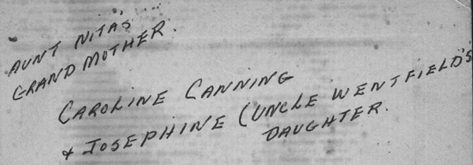 AUNT NITA'S
GRAND MOTHER.
CAROLINE CANNING
+ JOSEPHINE (UNCLE WENTFIELD'S
DAUGHTER.